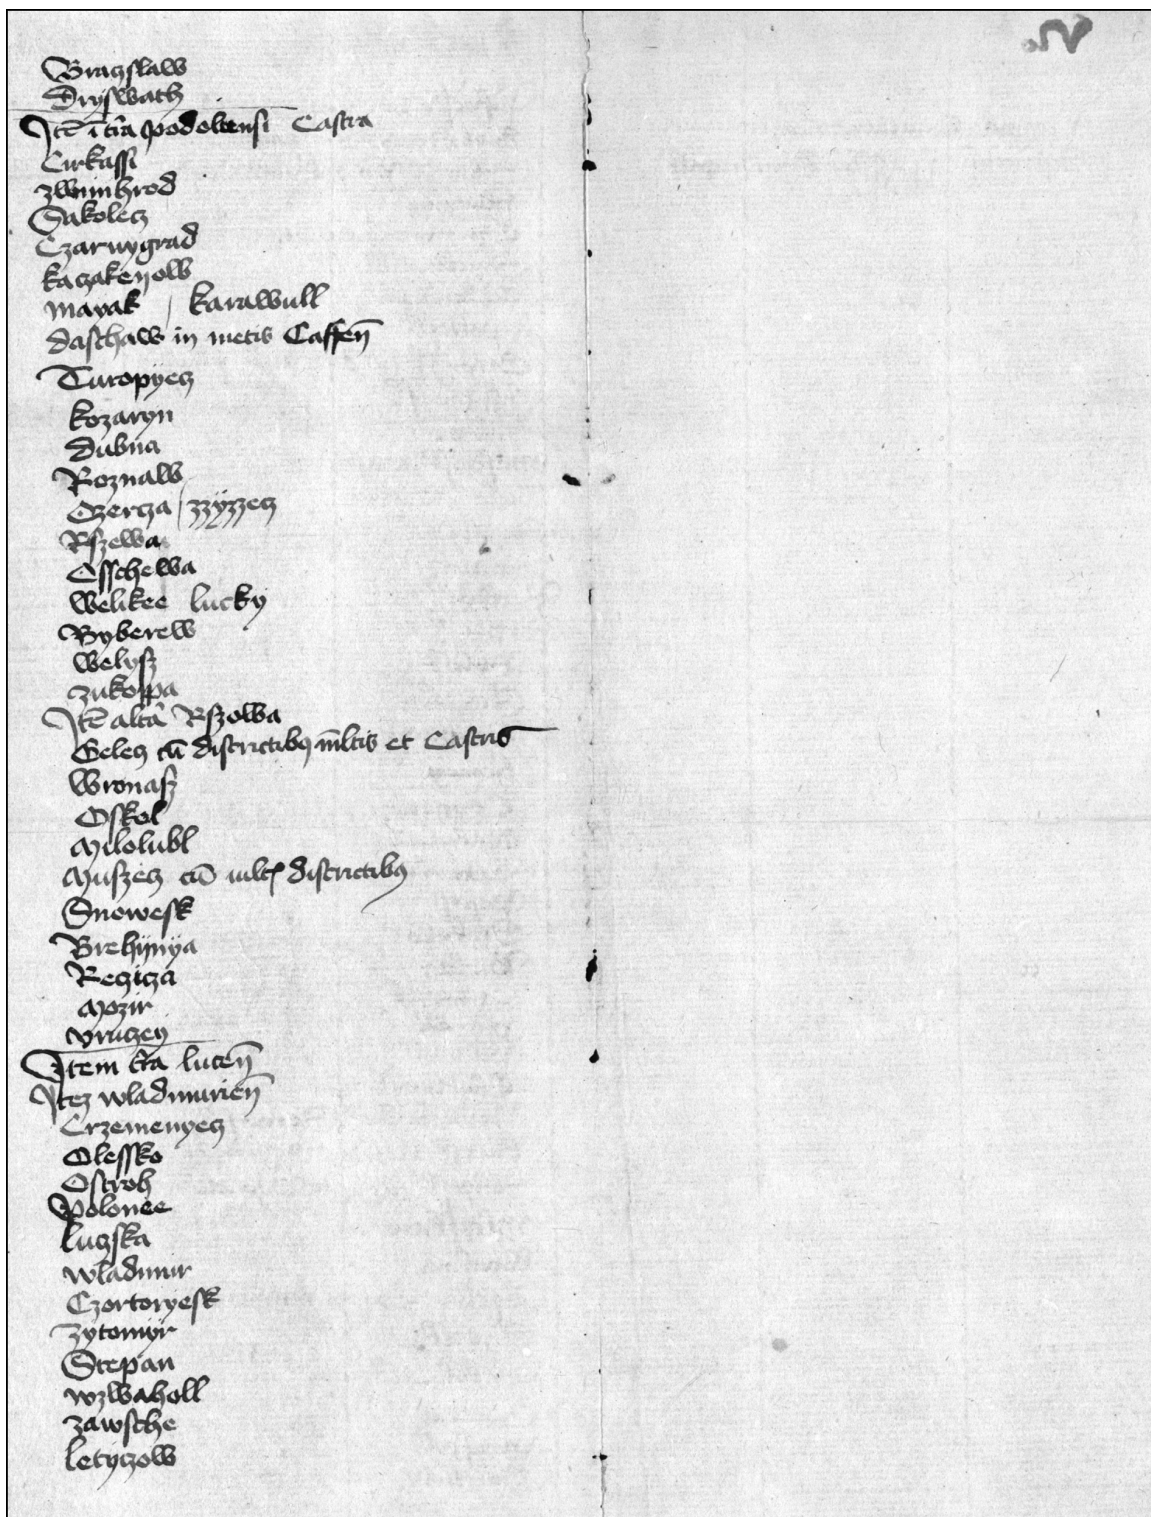 Braczslaw
Dryswath
Itē ī t̄ra podoliensi Castra
Cirkassi
zwinihrod
Sakolecz
Czarnygrad
kaczakenow
mayak / karawull
daschaw in metis Caffen̄
Turopyecz
kozaryn
dubna
Roznaw
Czercza / zzÿzzecz
Rszewa
Osschewa
welikee lucky
Byberew
welysz
zukoppa
Itē alt̄a Rszowa
Gelecz cū districtibꝫ m̄ltis et Castris
wronasz
Oskol
Milolubl
Muszecz cū districtibꝫ
Snowesk
Brehÿnÿa
Recziczа
Mozir
vruczey
Item t̄ra lucen̄
Itez wladimirien̄
Crzemenyecz
Olessko
Ostroh
Polonee
luczska
wladimir
Czortoryesk
zytomÿr
Stepan
wzwaholl
zawsche
letyczow